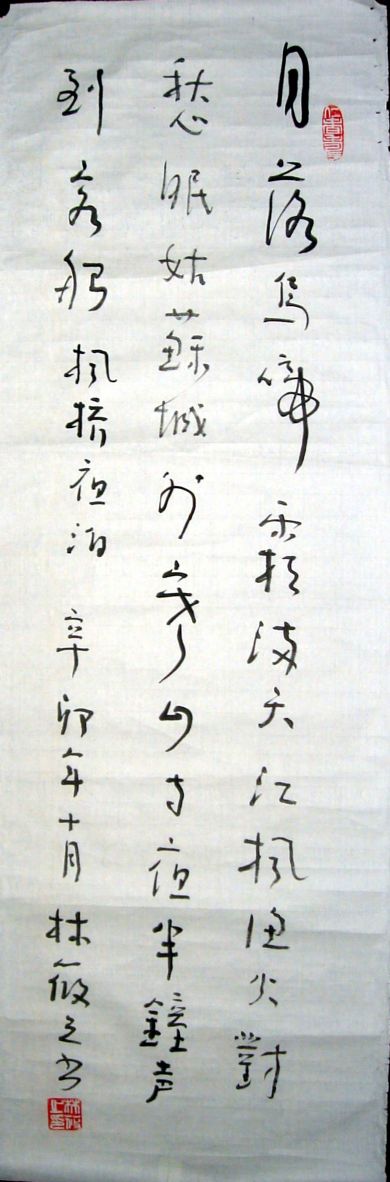 月落烏啼霜满天江枫渔火對
愁眠姑蘇城外寒山寺夜半鐘声
到客船枫桥夜泊 辛卯年十月林筱之书